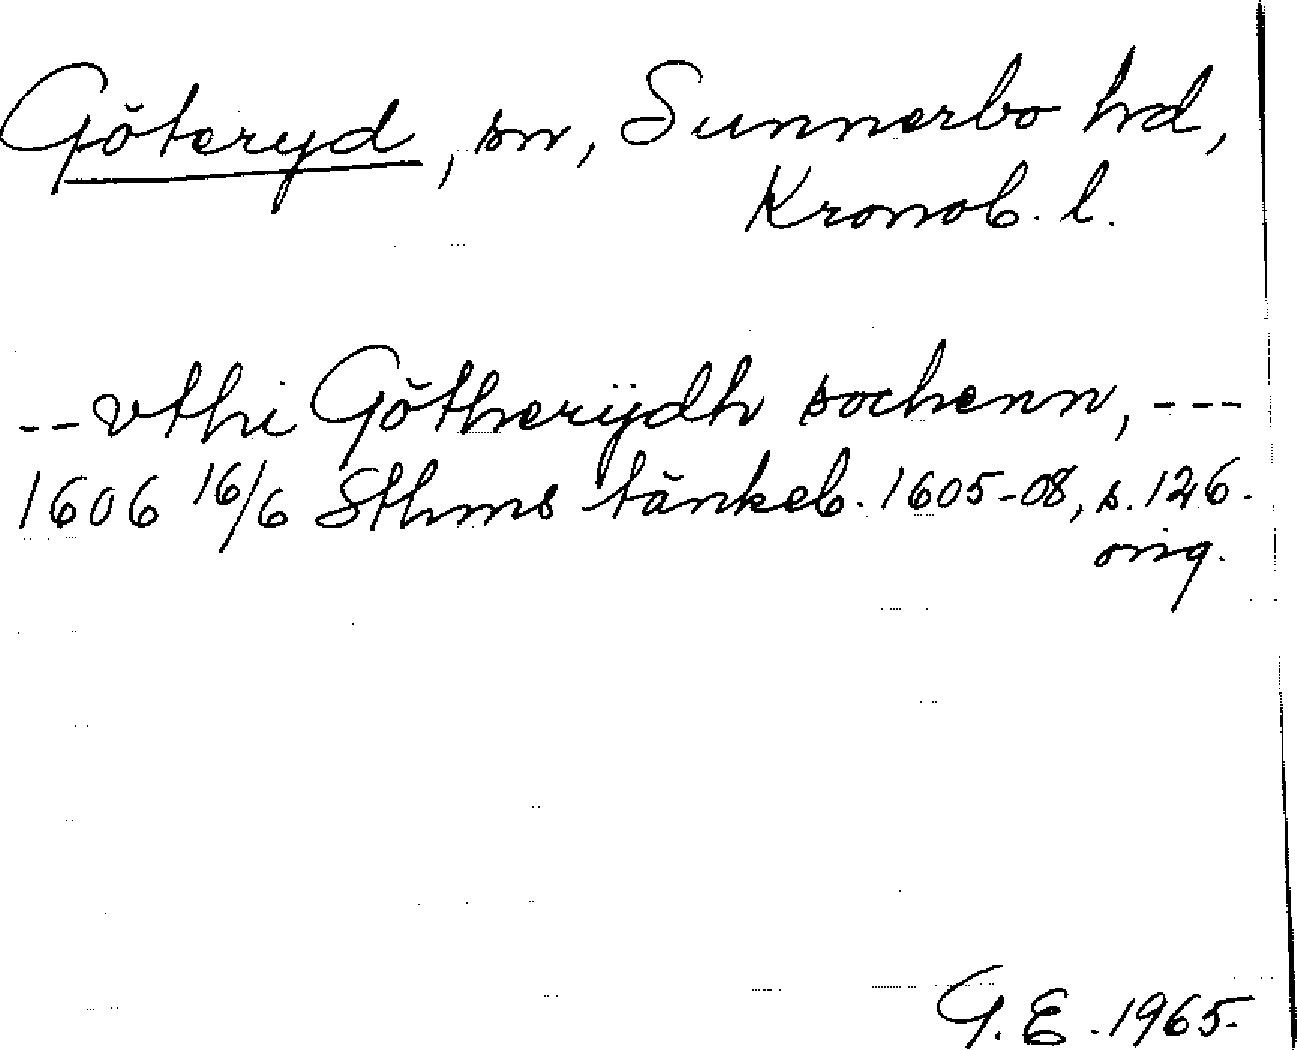 Göteryd, sn, Sunnerbo hd,
Kronob. l.
-- vthi Götherÿdh sochenn, ---
1606 16/6 Sthms tänkeb. 1605-08, s. 126.
orig.
G. E. 1965.